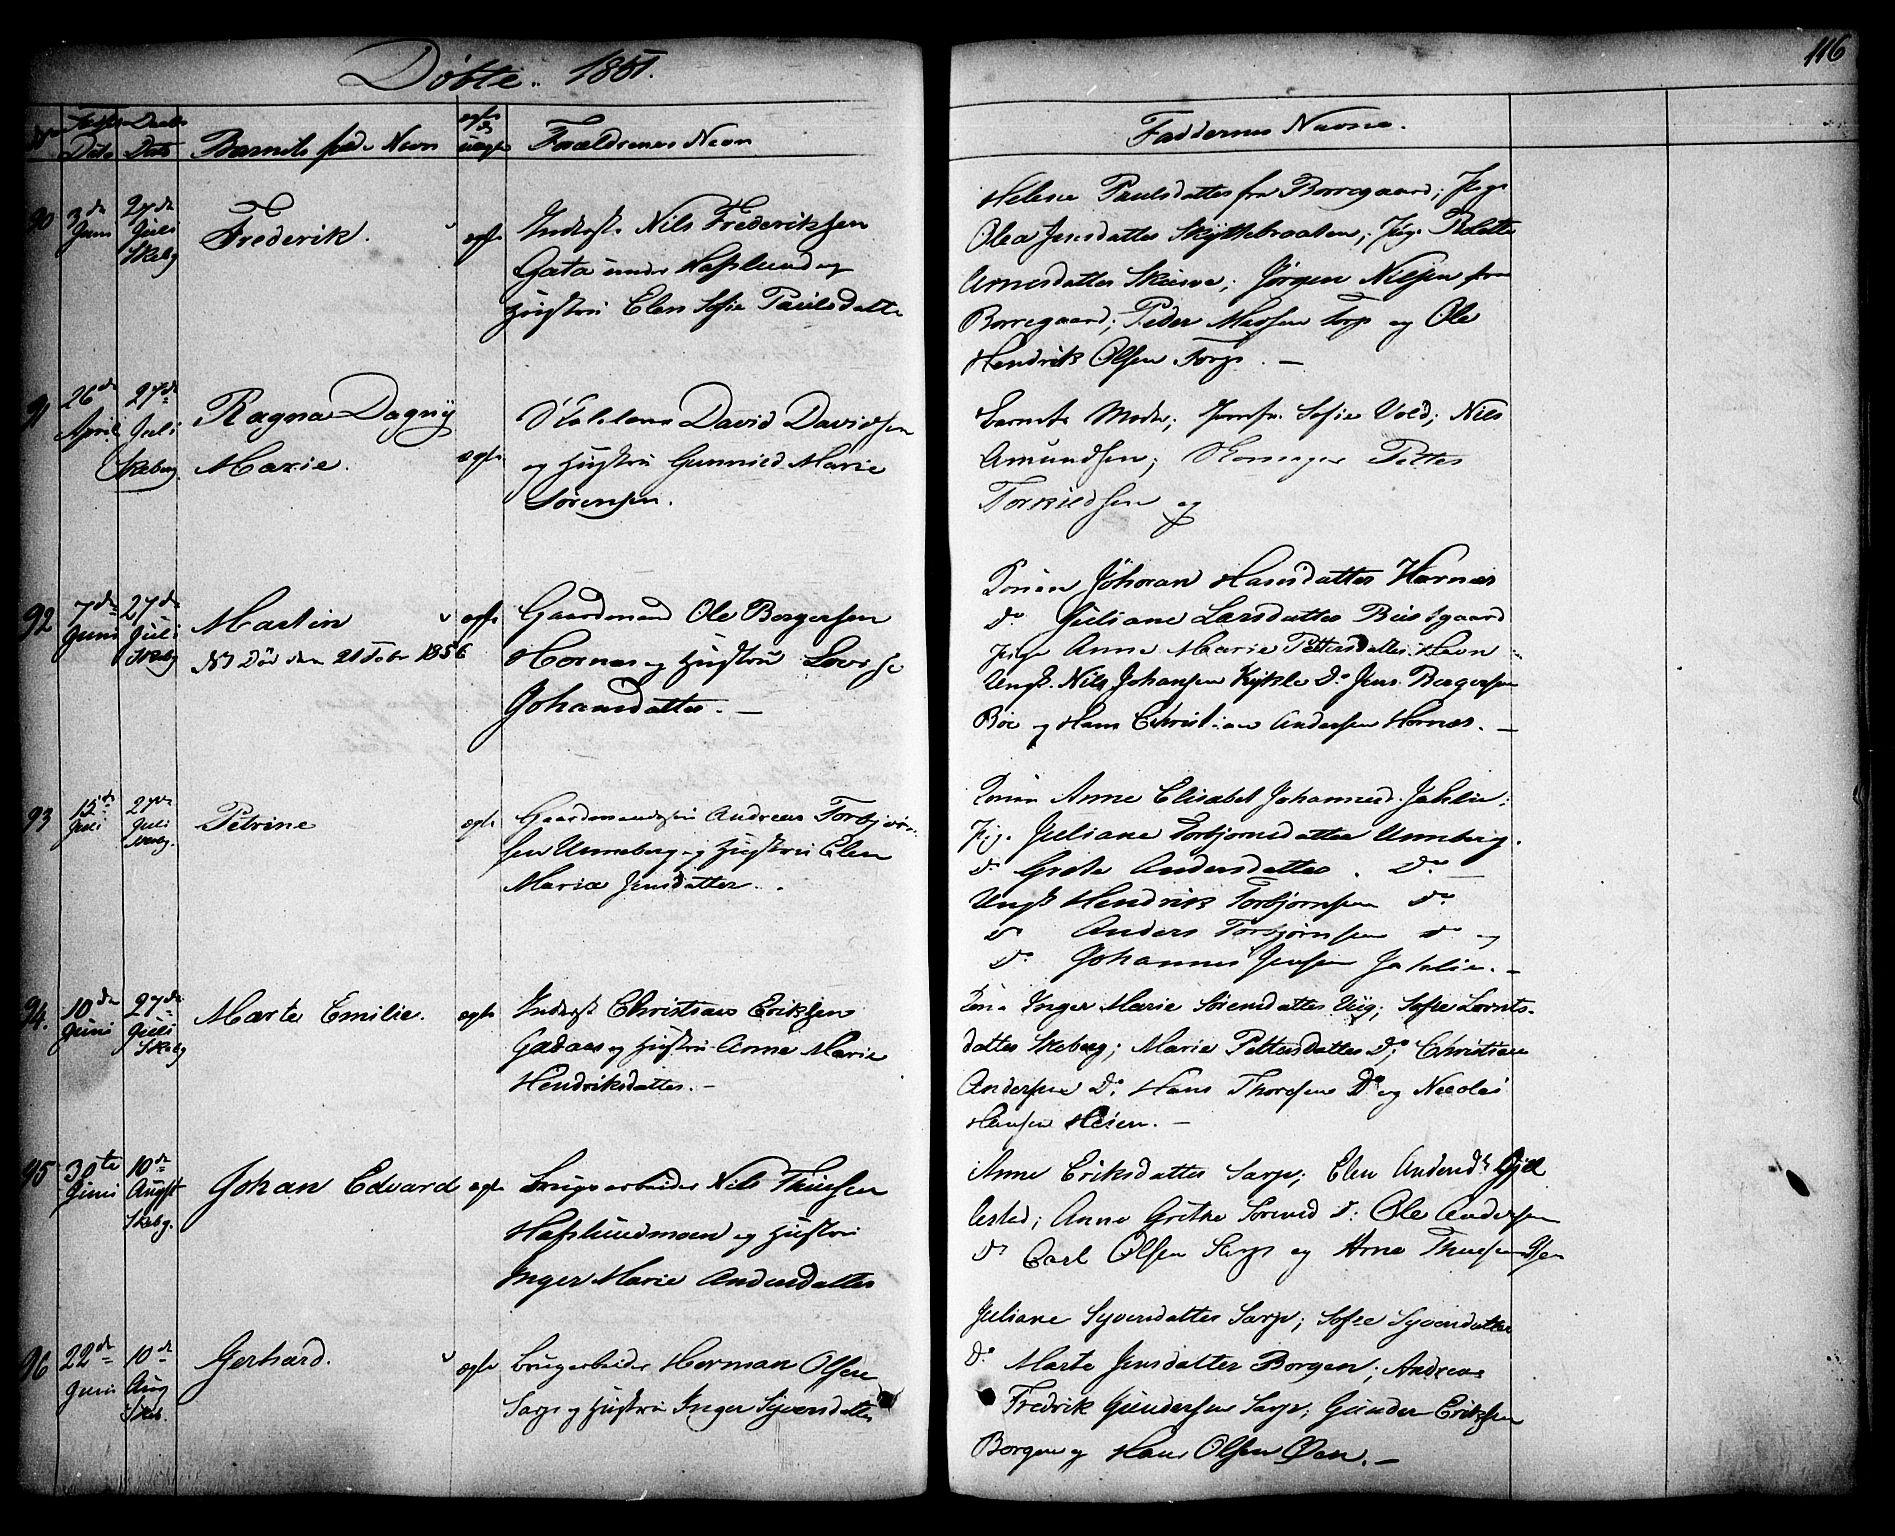 116
Døbte. 1851.
Dato Dato Barnets fulde Navn Forældrenes Navn
Faddernes Navne.
90 3de Juni 27de Juli Skebg
Frederik. ægte
Inderst Nils Frederiksen
Gata under Hafslund og
Hustru Elen Sofie Paulsdatte
Helene Paulsdatter fra Borregaard; Pige
Olea Jensdatter Skyttebraaten; Pige
Arnesdatter; Jørgen Nilsen fra
Borregaard; Peder Torp og Ole
Hendrik Olsen Torp. —
91 26de April 27de Juli Skeberg.
Ragna Dagny
Marie. ægte
David Davidsen
og Hustru Gunnild Marie
Sørensen.
Barnets Moder; Jomfr. Sofie Vold; Nils
Amundsen; Petter
Torkildsen og
92 7de Juni 27de Juli Skebg
Martin ægte
NB Død den 21 1856
Gaardmand Ole Borgersen
Hornæs og Hustru Lovise
Johansdatter. —
Konen Johoran Hansdatter Hornæs
do Juliane Larsdatter Bustgaard
Pige Anne Marie Pettersdatter Navn
Ungk. Nils Johansen Kykle Do Jens Borgersen
Böe og Hans Christian Andersen Hornæs. —
93 15de Juli 27de Juli Skebg.
Petrine ægte
Gaardmand Andreas Torbjørn-
sen Unneberg og Hustru Elen
Maria Jensdatter.
Konen Anne Elisabet Johannesd. Jahlin;
Pig. Juliane Torbjornsdatter Unneberg.
do Grete Andersdatter. Do —
Ungk Hendrik Torbjornsen do
do Anders Torbjørnsen do og
Do Johannes Jensen Jahlin. —
94. 10de Juni 27de Juli Skebg
Marte Emilie. ægte
Inderst Christian Eriksen
Gadaas og Hustru Anne Marie
Hendriksdatter. —
Kone Inger Marie Sørensdatter Viig; Sofie Lorents-
datter Skeberg; Marie Pettersdatter Do; Christian
Andersen Do. Hans Thoresen Do og Nicolai
Hansen. —
95 30te Juni 10de Augst Skebg.
Johan Edvard ægte
Brugsarbeider Nils Thuesen
Hafslundmoen og Hustru
Inger Marie Andersdatter
Anne Eriksdatter Sarp; Elen Andersd.
Anne Grethe Do: Ole Andersen
Do Carl Olsen Sarp og Arne Thuesen
96 22de Juni 10de Aug Skeb.
Gerhard. ægte
Brugarbeider Herman Olsen
Sarp og Hustru Inger Syversdatter
Juliane Syversdatter Sarp; Sofie Syversdatter
Do Marte Jensdatter Borgen; Andreas
Fredrik Gundersen Sarp; Gunder Eriksen
Borgen og Hans Olsen Øen. —